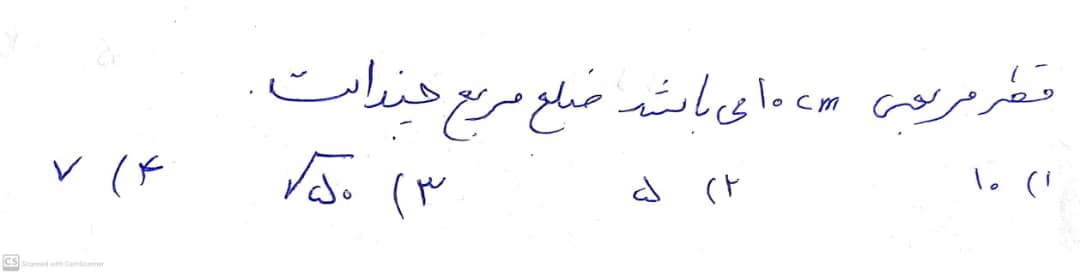 قطر مربعی ۱۰cm می باشد ضلع مربع چند است.
۱) ۱۰ ۲) ۵ ۳) √۵۰ ۴) ۷
CS Scanned with CamScanner